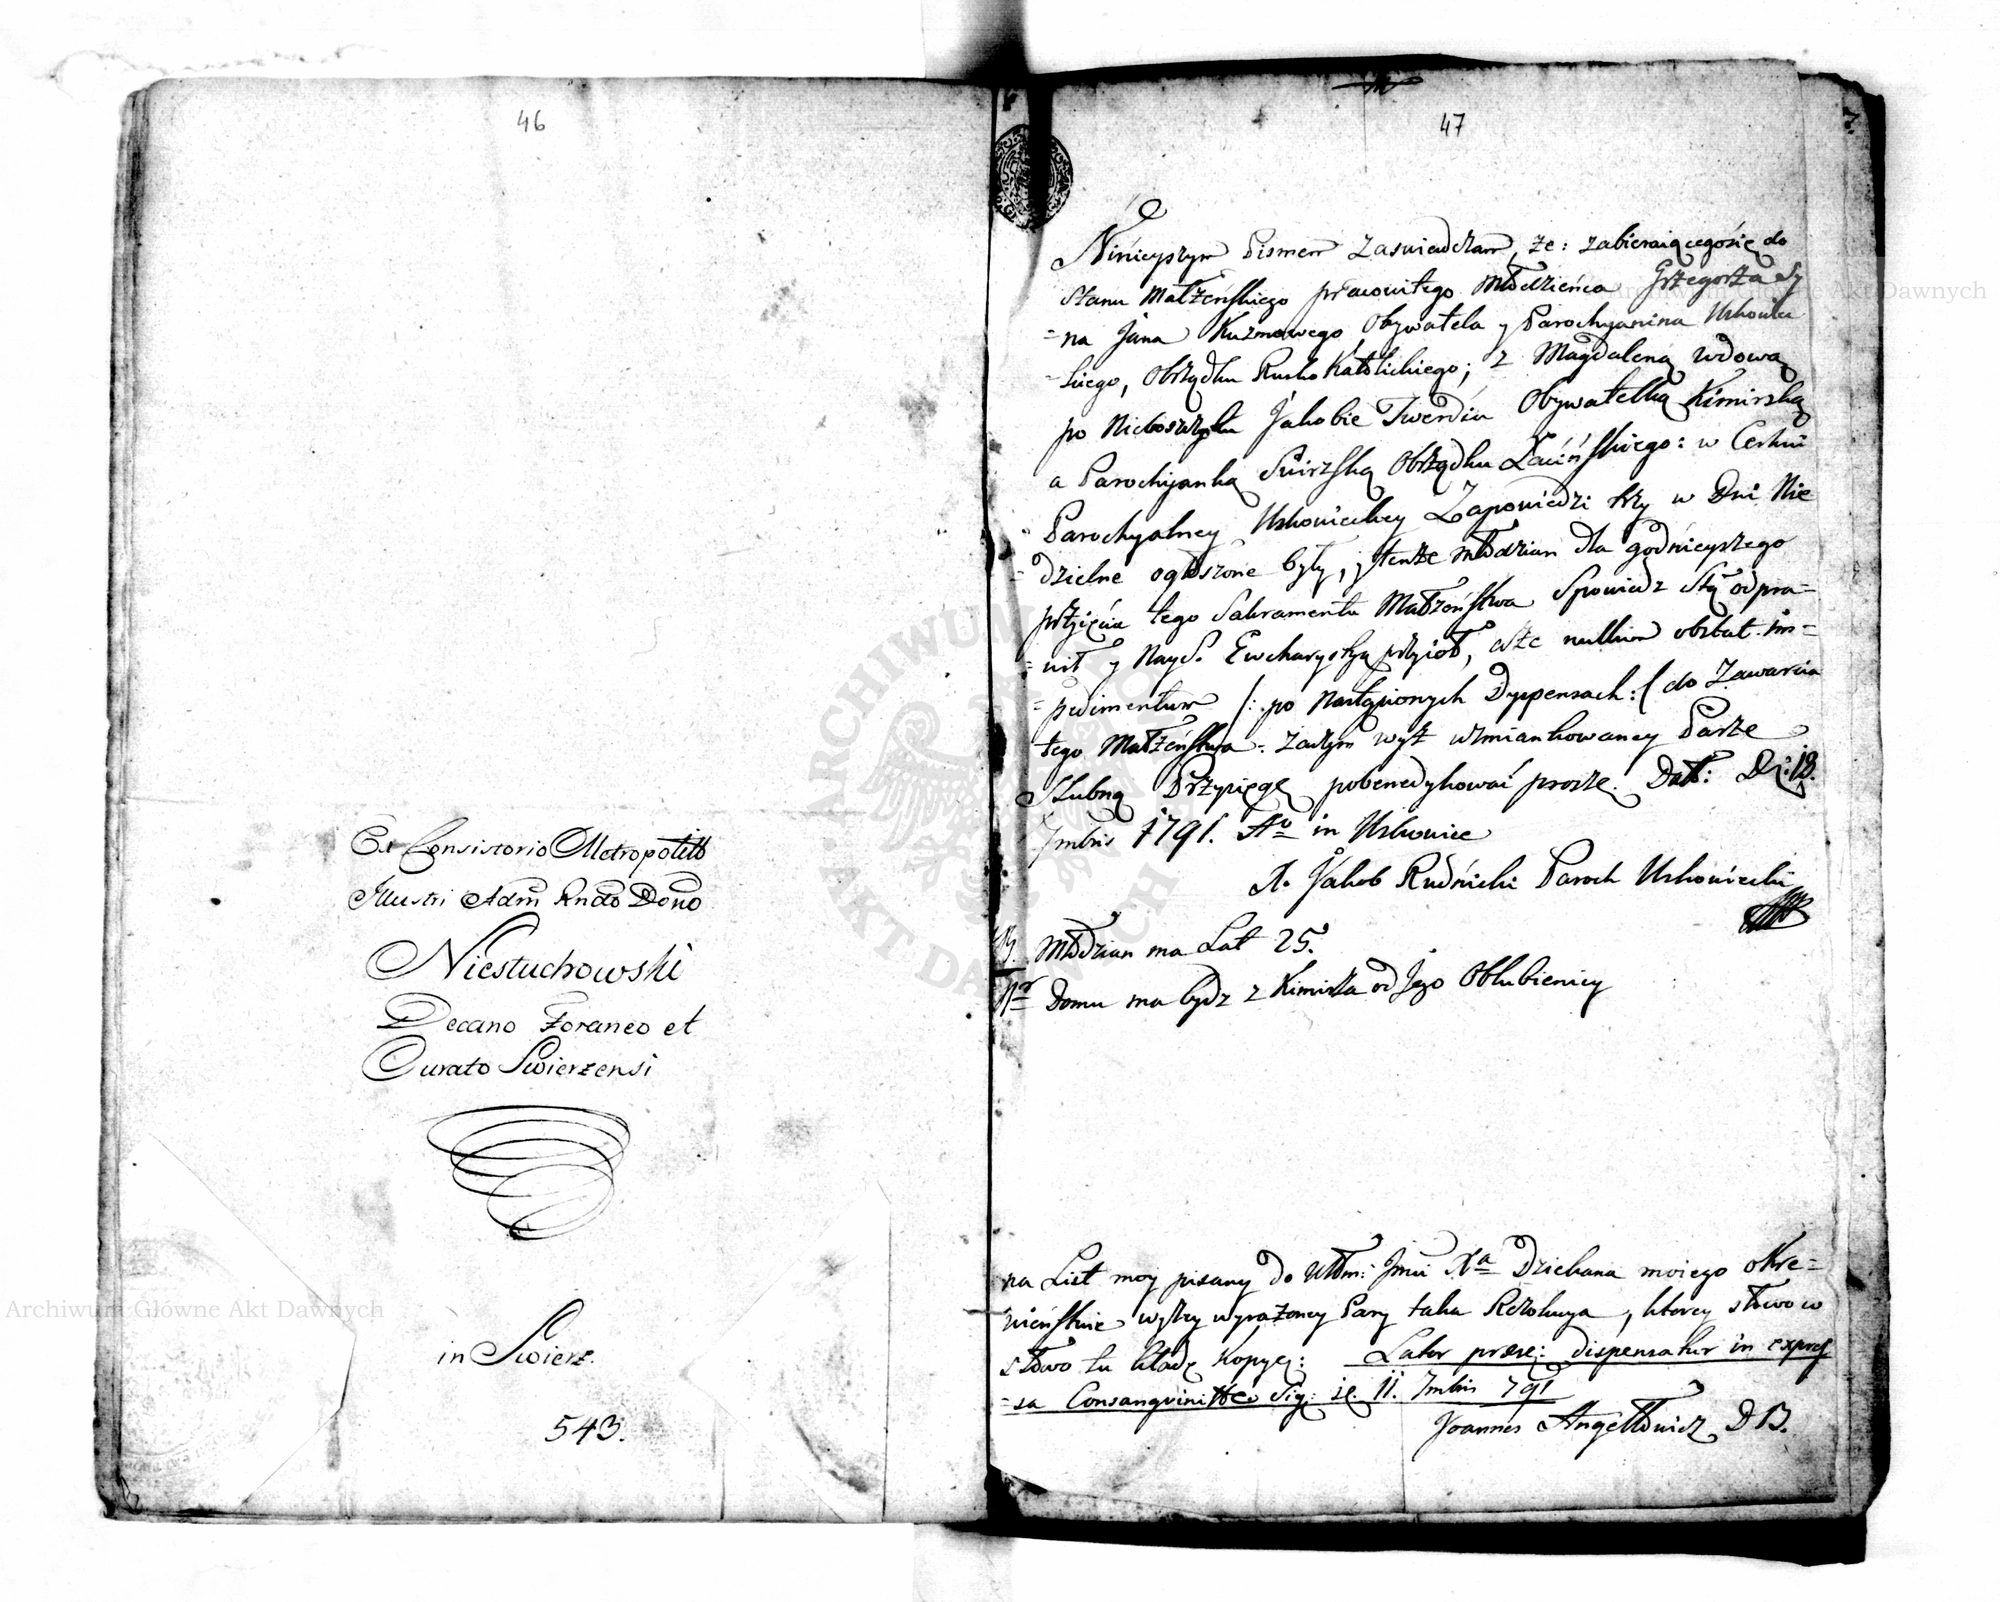 46
Ex Consistorio Metropolitto
Illustri Adm Rndo Dono
Niestuchowski
Decano Foraneo et
Curato Swierzensi
in Swierz.
543.
47
Ninieyszym Pismem Zaswiadczam, że: zabieraiącegosię do
stanu Małżeńskiego pracowitego Młodzieńca Grzegorza Sy
=na Jana Kuzmowego, Obywatela y Parochyanina Uszkowic
=kiego, Obrządku Rusko Katolickiego; z Magdaleną wdową
po Nieboszczyku Jakobie Twerdiu Obywatelką Kimirską
a Parochyanką Swirzską Obrządku Łacińskiego: w Cerkwi
Parochyalney Uszkowickiey Zapowiedzi trzy w Dni Nie
=dzielne ogłoszone były, y tenże młodzian dla godnieyszego
przyięcia tego Sakramentu Małżeństwa Spowiedz Stą odpra=
=wił y Nayś. Ewcharystyą przyioł, aże nullum obstat im=
=pedimentum /: po nastąpionych Dyspensach :/ do Zawarcia
tego Małżeństwa. zaczym wyż wzmiankowaney Parze
Szlubną Przysięgę pobenedykować proszę. Dat: D: 18.
7mbris 1791. Ao in Uszkowice
X. Jakob Rudnicki Paroch Uszkowicki
NB. Młodzian ma Lat 25.
Nr Domu ma bydz z Kimirza od Jego Oblubienicy
na List moy pisany do Wielm: Jmci Xa Dziekana moiego okre=
=nieńskie wyżey wyrażoney Pary taka Rezolucya, którey słowo w
słowo tu kładę Kopyę: Lator præse: dispensatur in expres
=sa Consanguinitte Sig: 11. 7mbris 791
Joannes Angełłowicz DB.
Archiwum Główne Akt Dawnych
Archiwum Główne Akt Dawnych
ARCHIWUM GŁÓWNE AKT DAWNYCH